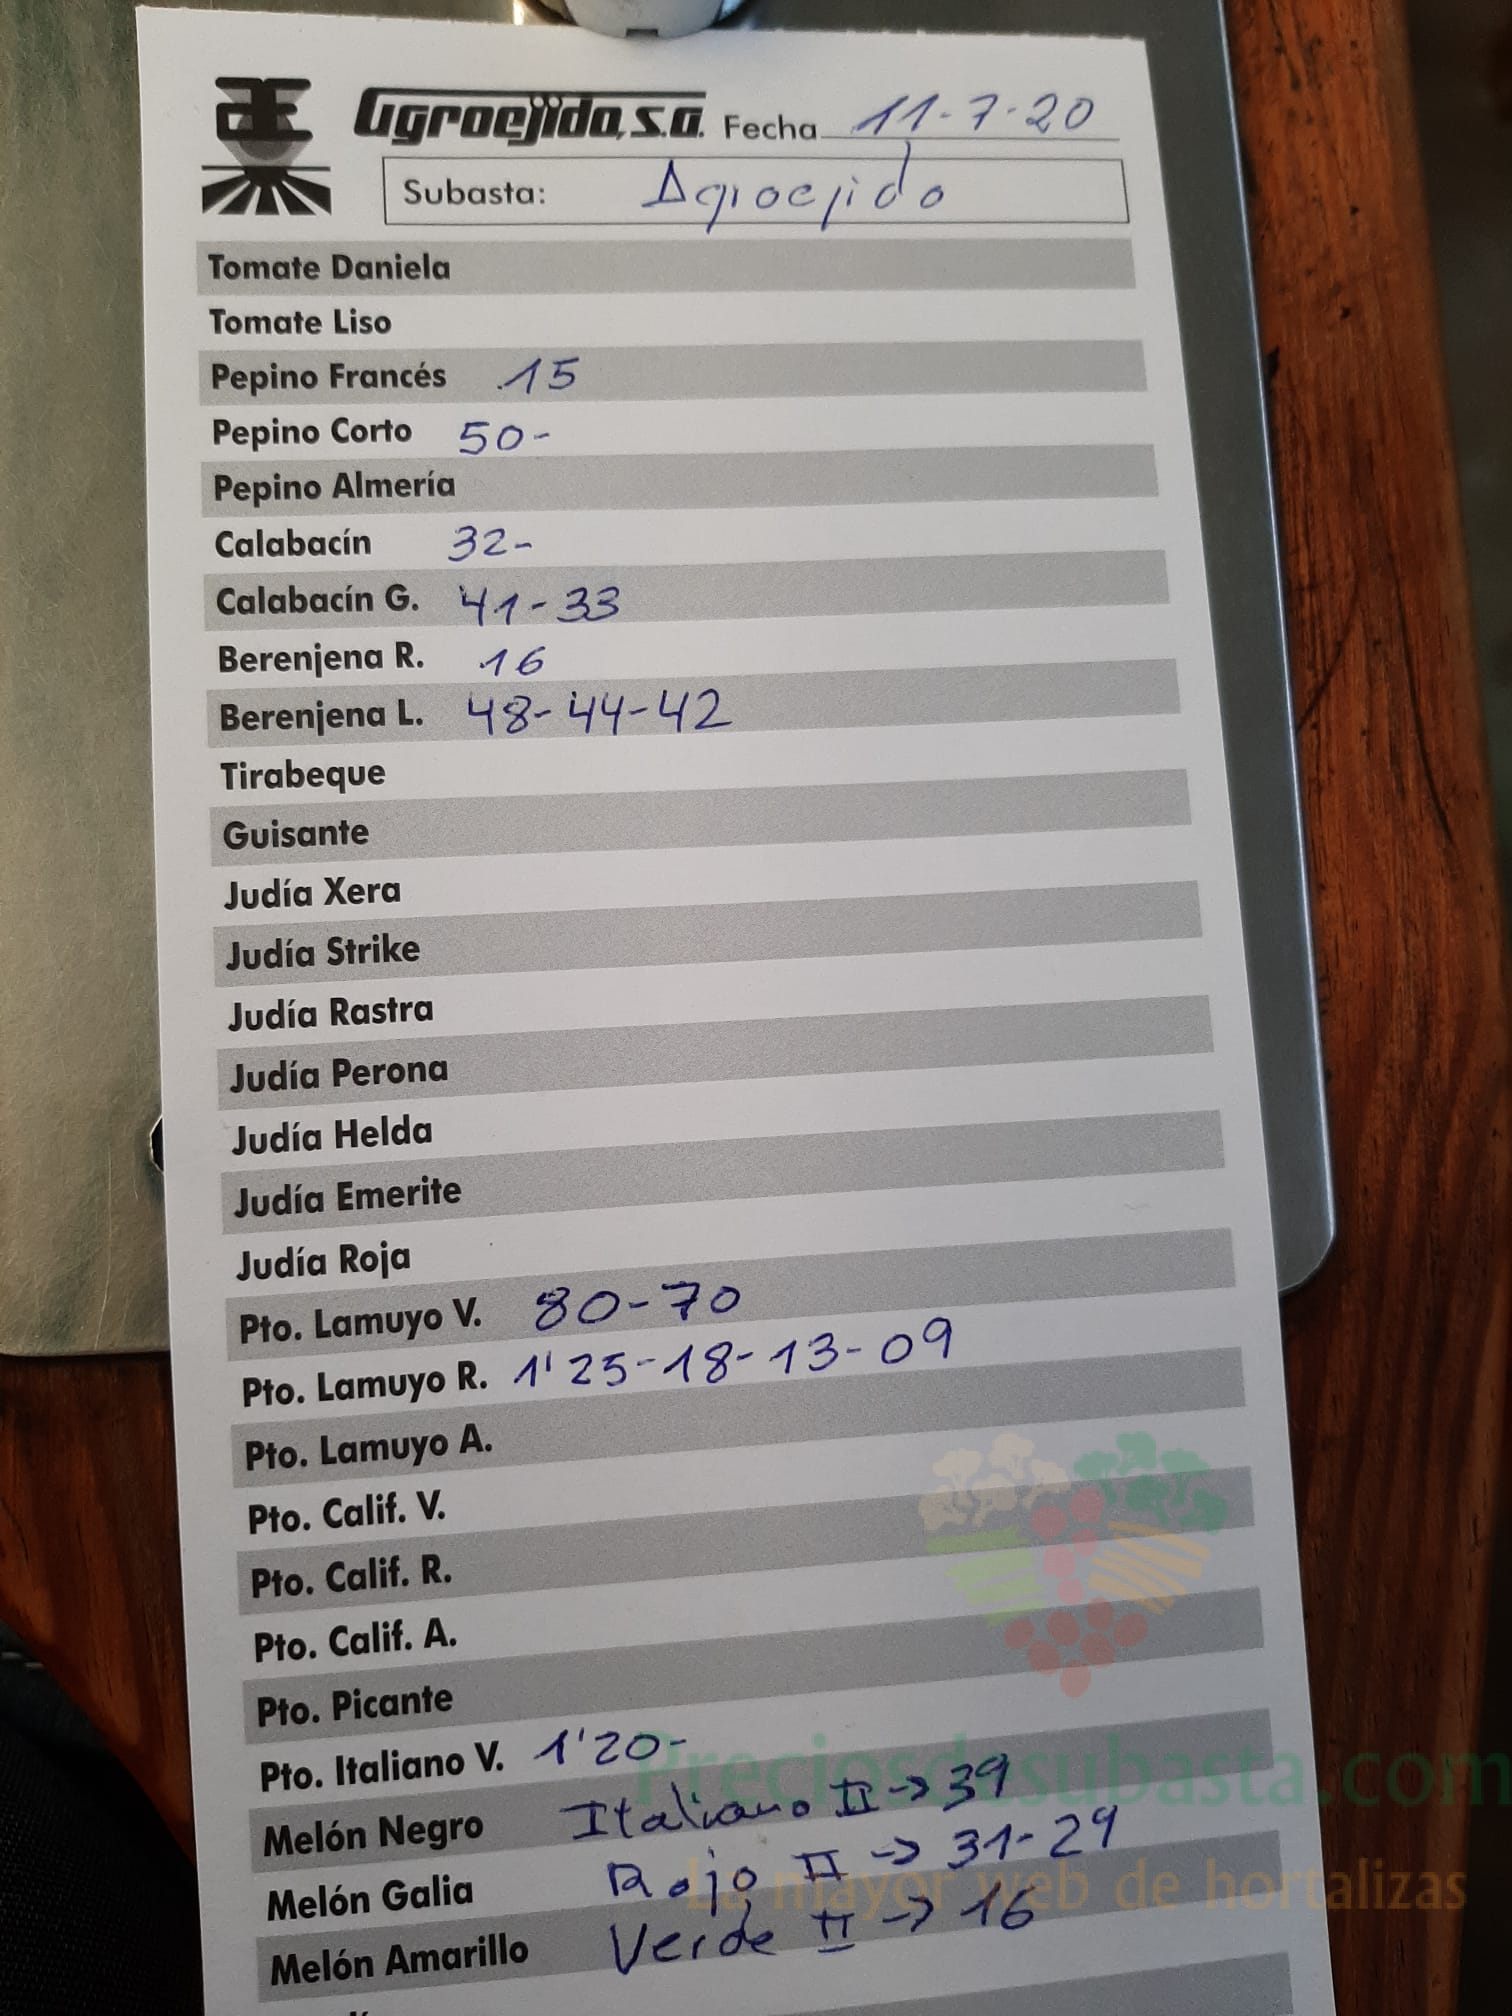 Agroejido, S.A. Fecha 11-7-20
Subasta: Agroejido
Tomate Daniela
Tomate Liso
Pepino Francés 15
Pepino Corto 50-
Pepino Almería
Calabacín 32-
Calabacín G. 41-33
Berenjena R. 16
Berenjena L. 48-44-42
Tirabeque
Guisante
Judía Xera
Judía Strike
Judía Rastra
Judía Perona
Judía Helda
Judía Emerite
Judía Roja
Pto. Lamuyo V. 80-70
Pto. Lamuyo R. 1'25-18-13-09
Pto. Lamuyo A.
Pto. Calif. V.
Pto. Calif. R.
Pto. Calif. A.
Pto. Picante
Pto. Italiano V. 1'20-
Preciosdesubasta.com
Melón Negro Italiano II → 39
Melón Galia Rojo II → 31-29
La mayor web de hortalizas
Melón Amarillo Verde II → 16